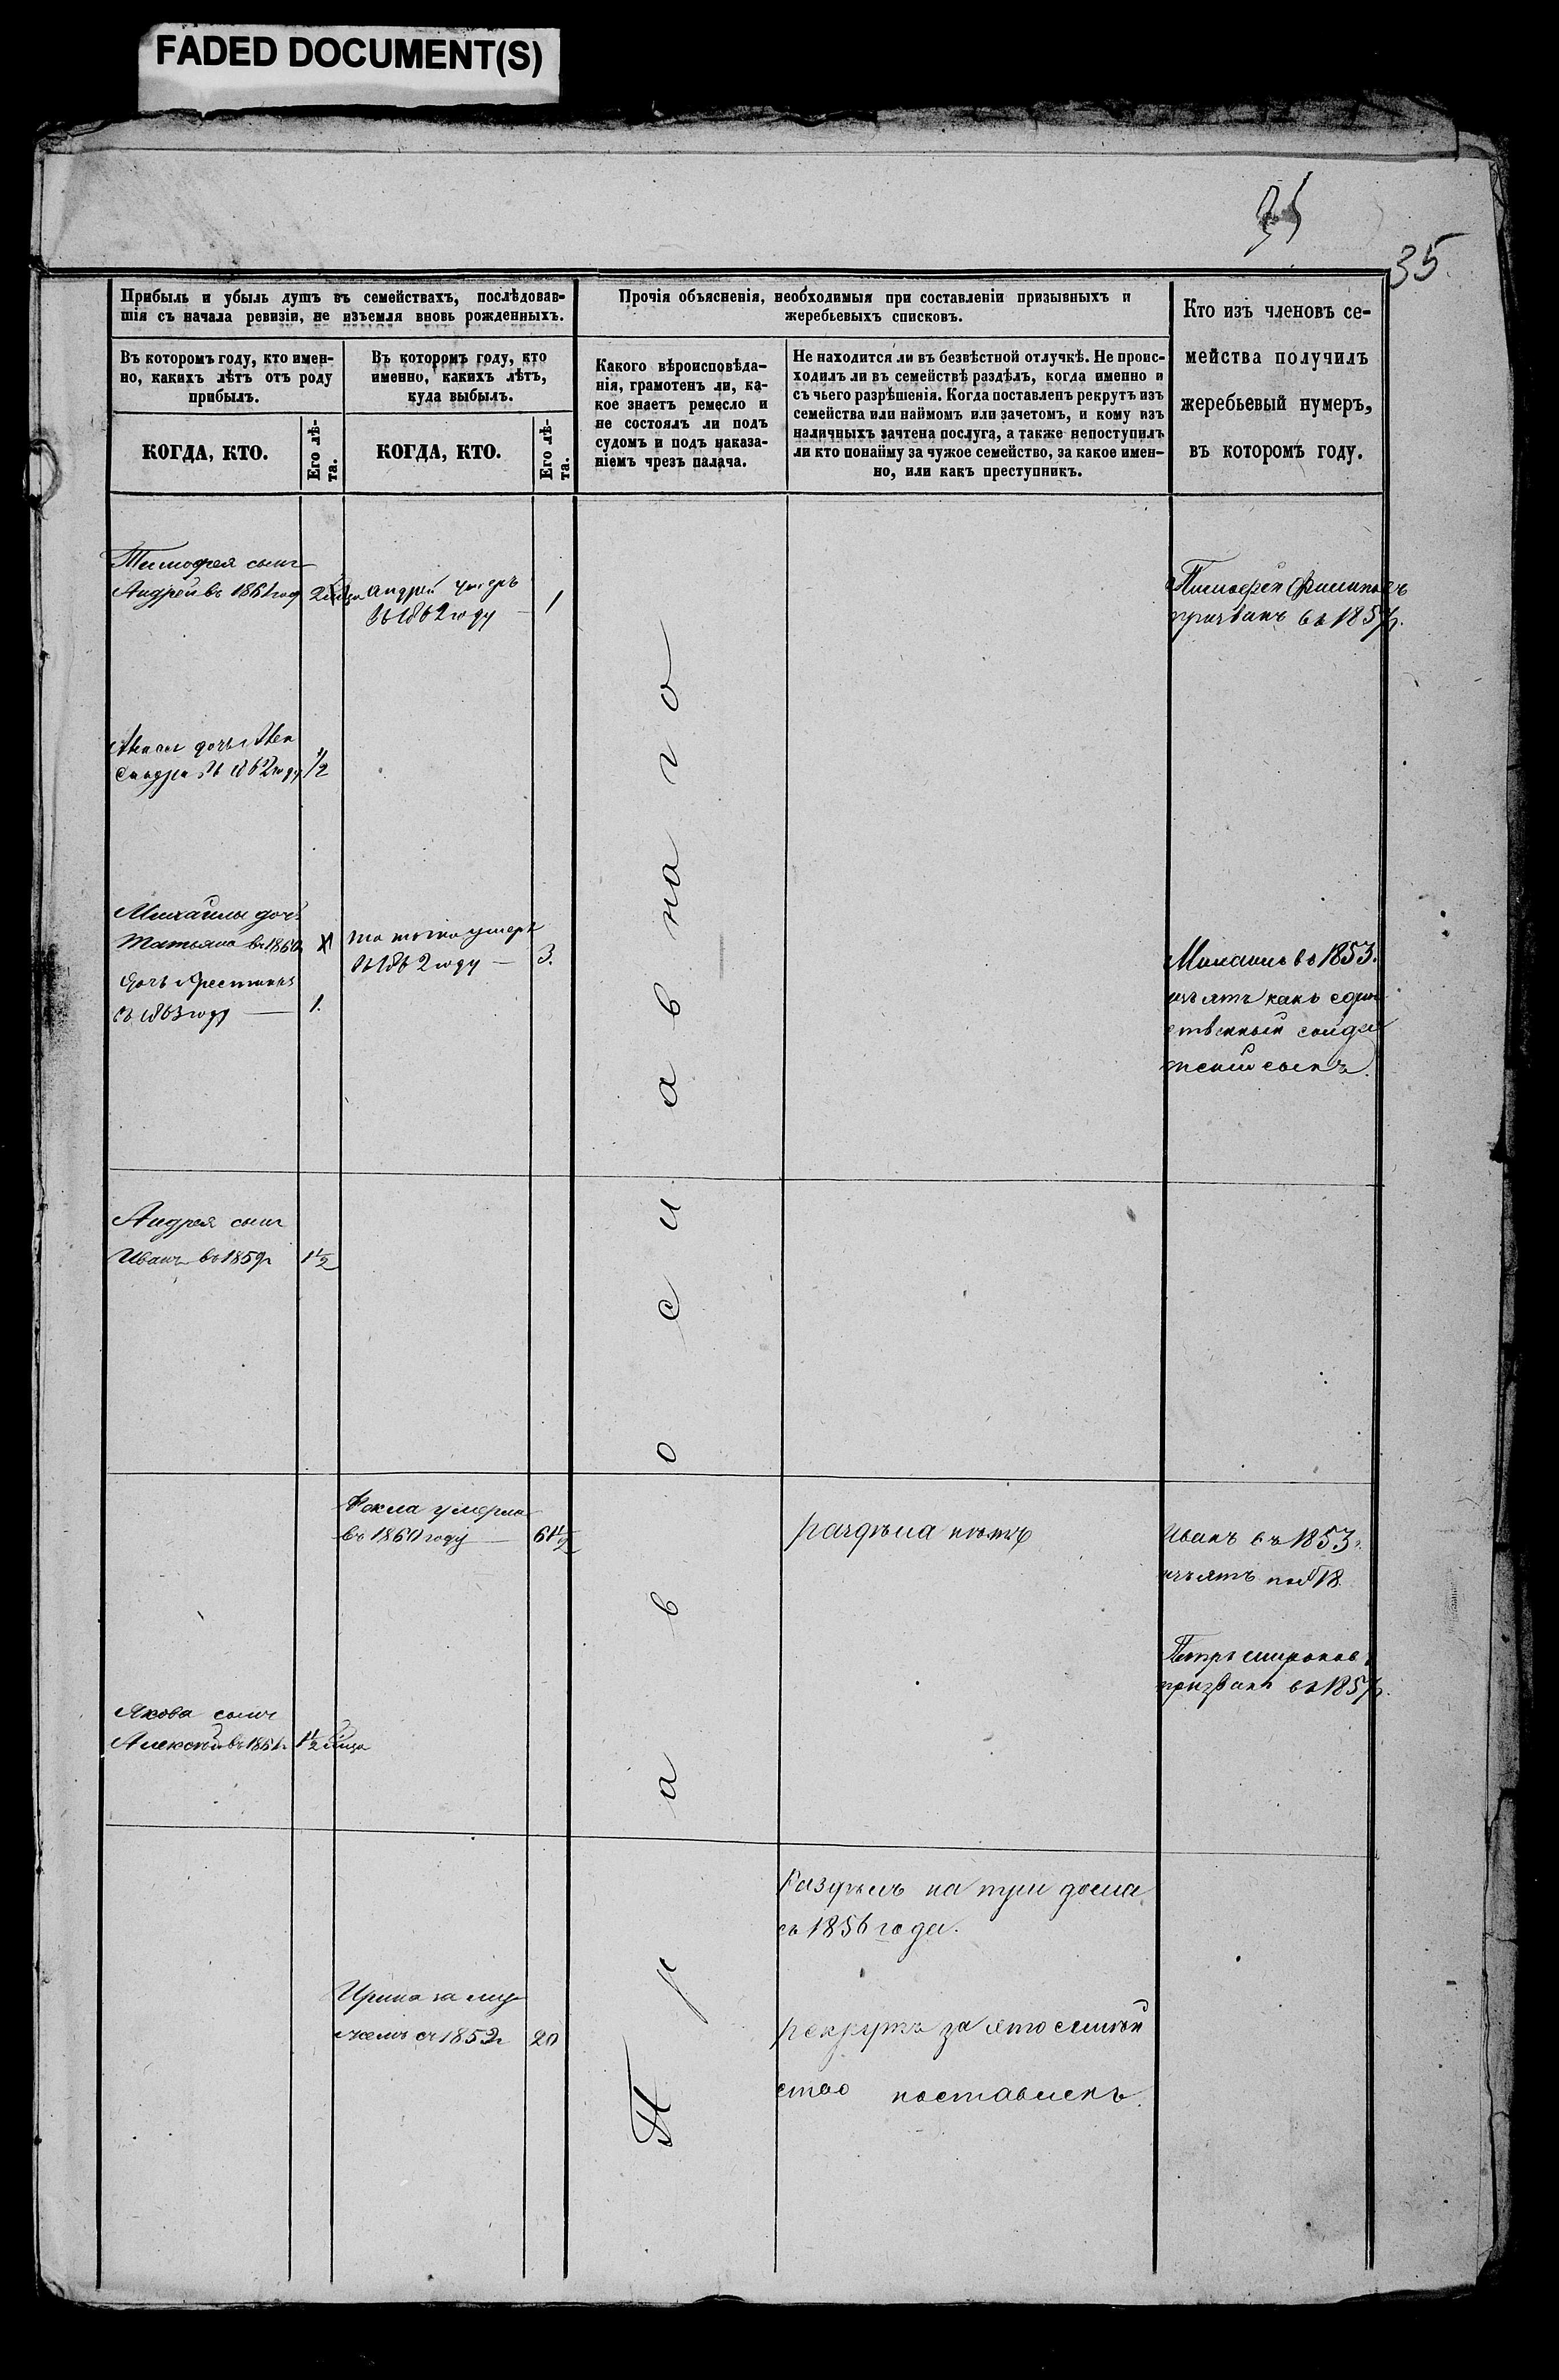 FADED DOCUMENT(S)
35
35
Прибыль и убыль душъ въ семействахъ, послѣдовав-
шія съ начала ревизіи, не изъемля вновь рожденныхъ.
Прочія объясненія, необходимыя при составленіи призывныхъ и
жеребьевыхъ списковъ.
Кто изъ членовъ се-
мейства получилъ
жеребьевый нумеръ,
въ которомъ году.
Въ которомъ году, кто имен-
но, какихъ лѣтъ отъ роду
прибылъ.
Въ которомъ году, кто
именно, какихъ лѣтъ,
куда выбылъ.
Какого вѣроисповѣда-
нія, грамотенъ ли, ка-
кое знаетъ ремесло и
не состоялъ ли подъ
судомъ и подъ наказа-
ніемъ чрезъ палача.
Не находится ли въ безвѣстной отлучкѣ. Не проис-
ходилъ ли въ семействѣ раздѣлъ, когда именно и
съ чьего разрѣшенія. Когда поставленъ рекрутъ изъ
семейства или наймомъ или зачетомъ, и кому изъ
наличныхъ зачтена послуга, а также непоступилъ
ли кто понайму за чужое семейство, за какое имен-
но, или какъ преступникъ.
КОГДА, КТО.
Его лѣ-
та.
КОГДА, КТО.
Его лѣ-
та.
Тимофея сынъ
Андрей въ 1861 год
Андрей умеръ
въ 1862 году — 1
Тимофей Филиповъ
призванъ въ 1857г.
дочь Алек
сандра въ 1862 году 1/2
Михаила дочь
Татьяна въ 1860г
дочь
въ 1863 году — 1.
умерла
въ 1862 году — 3.
Михаилъ въ 1853.
изъятъ какъ един
ственный солда
тскій сынъ.
Андрея сынъ
Иванъ въ 1859г 1 1/2
Фекла умерла
въ 1860 году — 61 1/2
раздѣла нѣтъ
Иванъ въ 1853г.
изъятъ 18.
Петръ Мироновъ
призванъ въ 1857г.
Якова сынъ
Алексѣй въ 1861г 1/2
Раздѣлъ на три дома
съ 1856 года.
Ирина за му
жемъ съ 1859г 20
рекрутъ за ето семей
ство поставленъ.
Православнаго